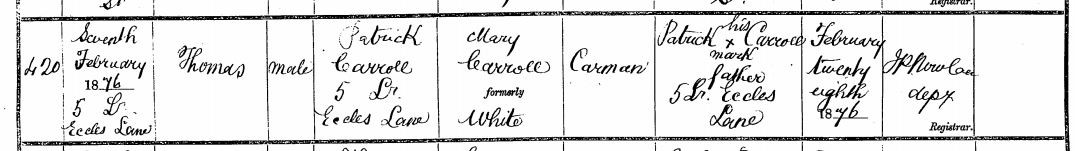 Registrar.
420
Seventh
February
1876
5 Lr.
Eccles Lane
Thomas
male
Patrick
Carroll
5 Lr.
Eccles Lane
Mary
Carroll
formerly
White
Carman
Patrick his Carroll
x
mark
father
5 Lr. Eccles
Lane
February
twenty
eighth
1876
depy
Registrar.